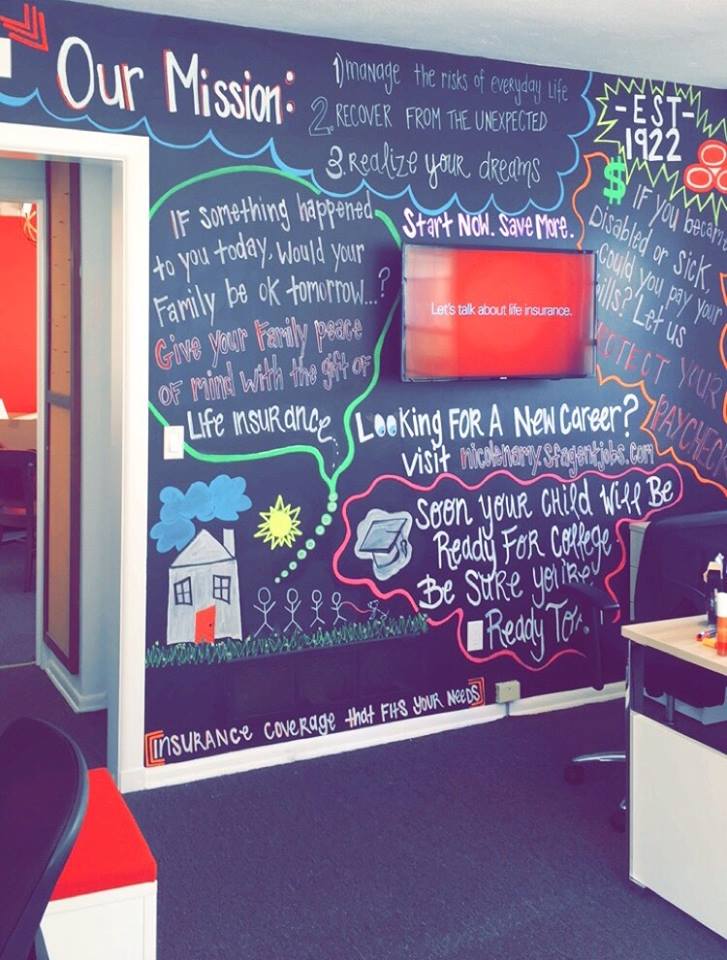 Our Mission:
1) manage the risks of everyday life
2. RECOVER FROM THE UNEXPECTED
3. Realize your dreams
-EST-
1922
$
IF something happened
to you today, would your
Family be OK tomorrow...?
Give your Family peace
of mind with the gift of
Life insurance.
Start Now. Save More.
Let's talk about life insurance.
IF you becam
Disabled or sick,
Could you pay your
ills? Let us
OTECT YOUR
PAYCHECK
Looking FOR A New Career?
Visit nicolenamy.sfagentjobs.com
Soon your child will Be
Ready For College
Be Sure you're
Ready Too.
INSURANCE COVERAGE that FITS YOUR NEEDS